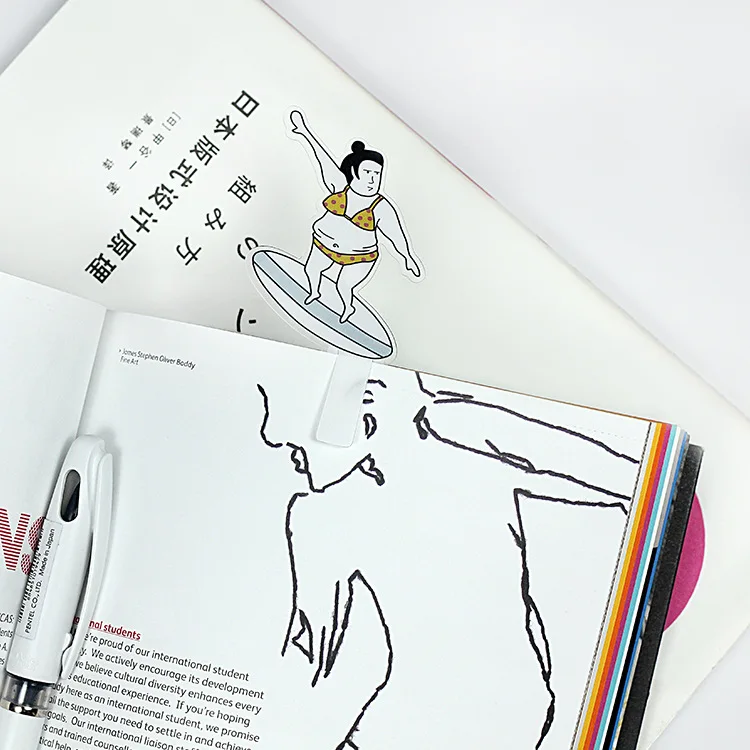 日本版式设计原理
組み方
の
[日]甲谷一 著
James Stephen Oliver Boddy
Fine Art
PENTEL CO., LTD. Made in Japan
students
're proud of our international student
We actively encourage its development
we believe cultural diversity enhances every
educational experience. If you're hoping
here as an international student, we promise
all the support you need to settle in and achieve
goals. Our international liaison
and trained
help